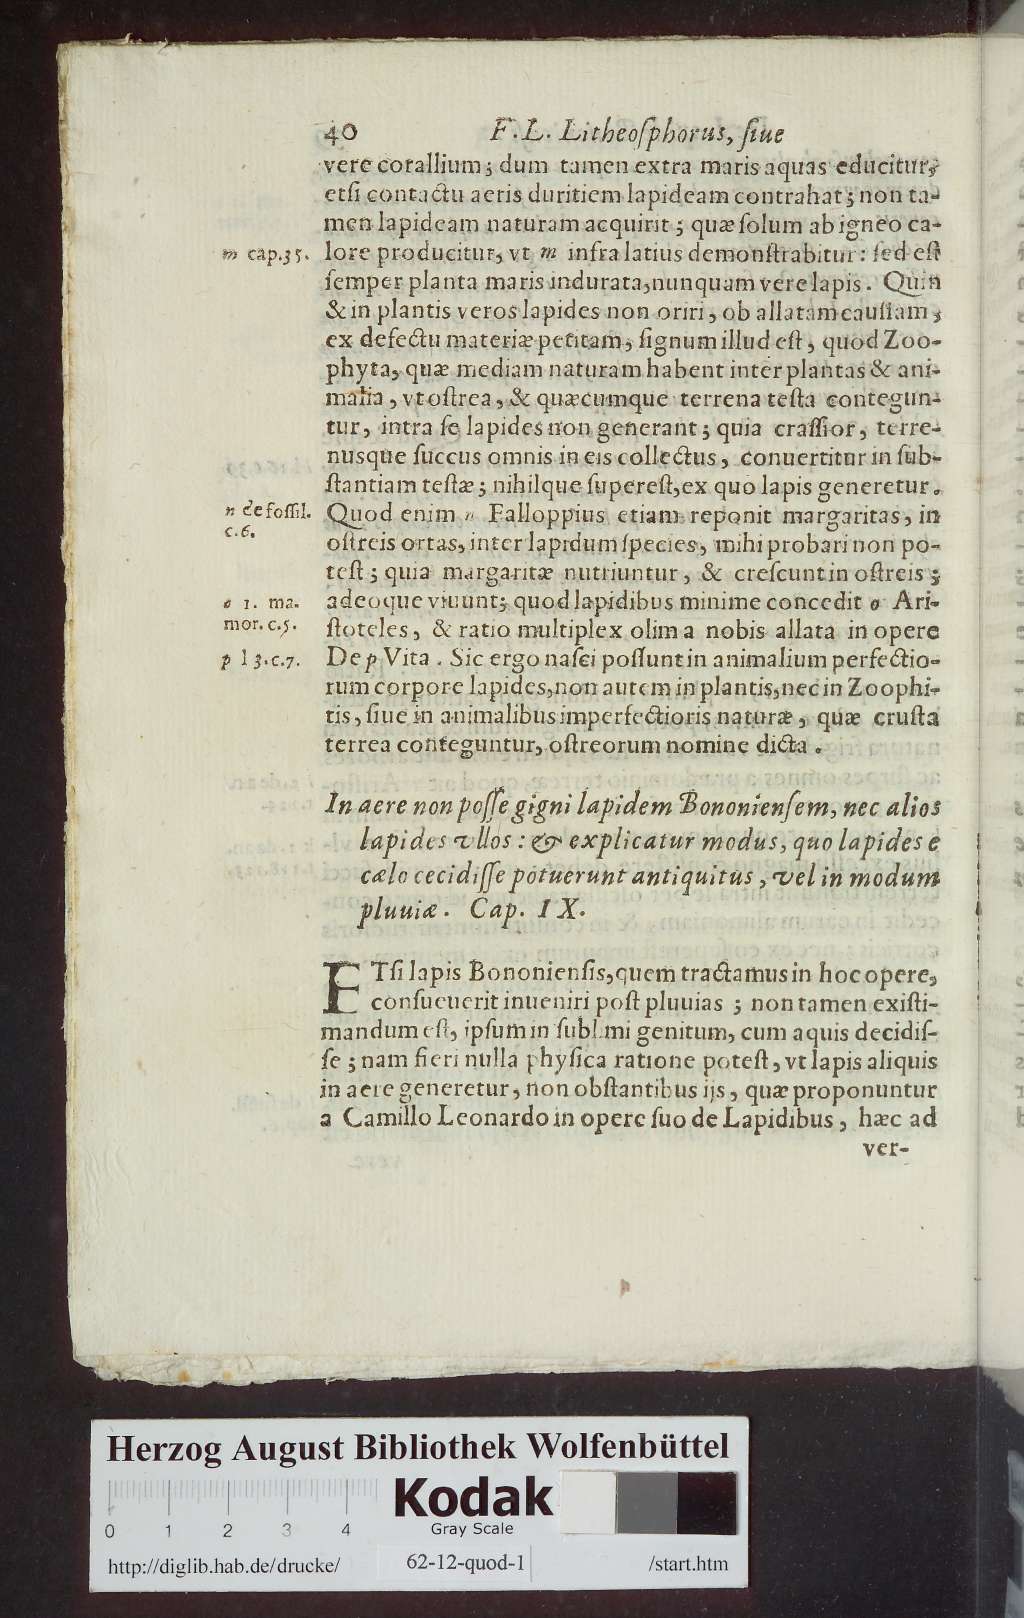 40 F. L. Litheoſphorus, ſiue
vere corallium; dum tamen extra maris aquas educitur,
etſi contactu aeris duritiem lapideam contrahat; non ta-
men lapideam naturam acquirit; quæ ſolum ab igneo ca-
m cap.35. lore producitur, vt m infra latius demonſtrabitur: ſed eſt
ſemper planta maris indurata, nunquam vere lapis. Quin
& in plantis veros lapides non oriri, ob allatam cauſſam,
ex defectu materiæ petitam, ſignum illud eſt, quod Zoo-
phyta, quæ mediam naturam habent inter plantas & ani-
malia, vt oſtrea, & quæcumque terrena teſta contegun-
tur, intra ſe lapides non generant; quia craſſior, terre-
nusque ſuccus omnis in eis collectus, conuertitur in ſub-
ſtantiam teſtæ; nihilque ſupereſt, ex quo lapis generetur.
n de foſſil. Quod enim n Falloppius etiam reponit margaritas, in
c.6. oſtreis ortas, inter lapidum ſpecies, mihi probari non po-
teſt; quia margaritæ nutriuntur, & creſcunt in oſtreis;
o 1. ma. adeoque viuunt; quod lapidibus minime concedit o Ari-
mor. c.5. ſtoteles, & ratio multiplex olim a nobis allata in opere
p l 3.c.7. De p Vita. Sic ergo naſci poſſunt in animalium perfectio-
rum corpore lapides, non autem in plantis, nec in Zoophi-
tis, ſiue in animalibus imperfectioris naturæ, quæ cruſta
terrea conteguntur, oſtreorum nomine dicta.
In aere non poſſe gigni lapidem Bononienſem, nec alios
lapides vllos: & explicatur modus, quo lapides e
cælo cecidiſſe potuerunt antiquitus, vel in modum
pluuiæ. Cap. IX.
ETſi lapis Bononienſis, quem tractamus in hoc opere,
conſueuerit inueniri poſt pluuias; non tamen exiſti-
mandum eſt, ipſum in ſublimi genitum, cum aquis decidiſ-
ſe; nam fieri nulla phyſica ratione poteſt, vt lapis aliquis
in aere generetur, non obſtantibus ijs, quæ proponuntur
a Camillo Leonardo in opere ſuo de Lapidibus, hæc ad
ver-
Herzog August Bibliothek Wolfenbüttel
Kodak
Gray Scale
0 1 2 3 4
http://diglib.hab.de/drucke/ 62-12-quod-1 /start.htm